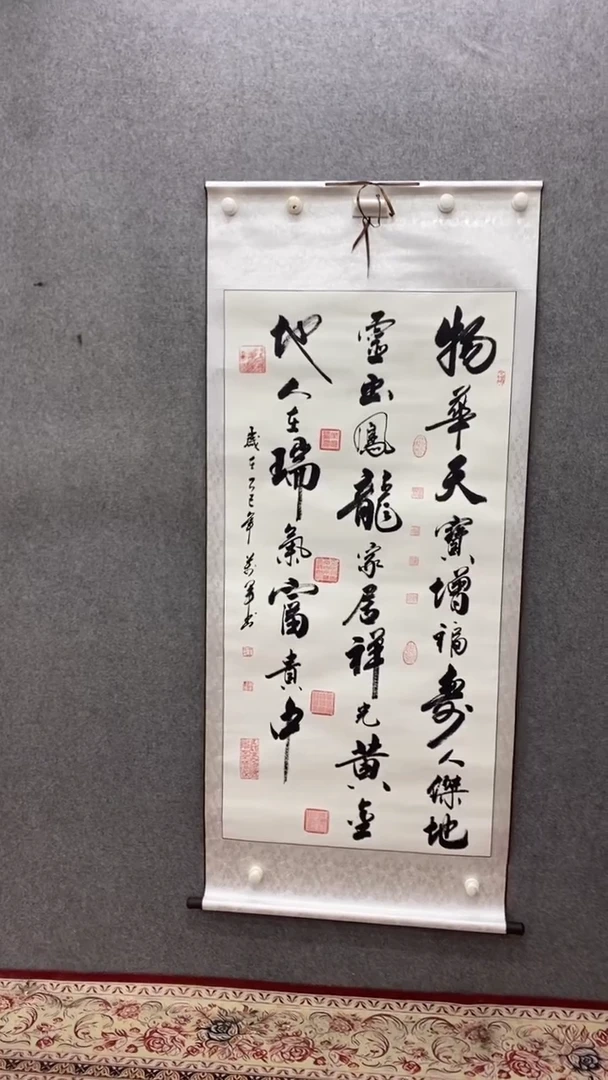 物華天寶增福壽人傑地
靈出鳳龍家居祥光黃金
地人在瑞氣富貴中
歲在乙巳年